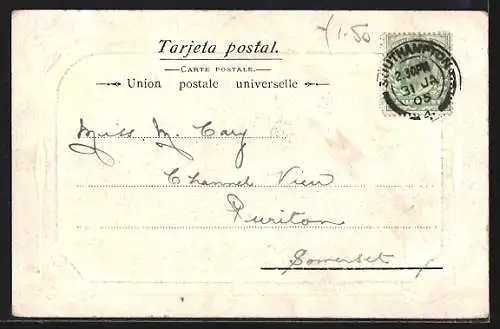 1.50
Tarjeta postal.
CARTE POSTALE.
Union postale universelle
SOUTHAMPTON
2.30PM
31 JA
05
Miss M. Cary
Channel View
Puriton
Somerset